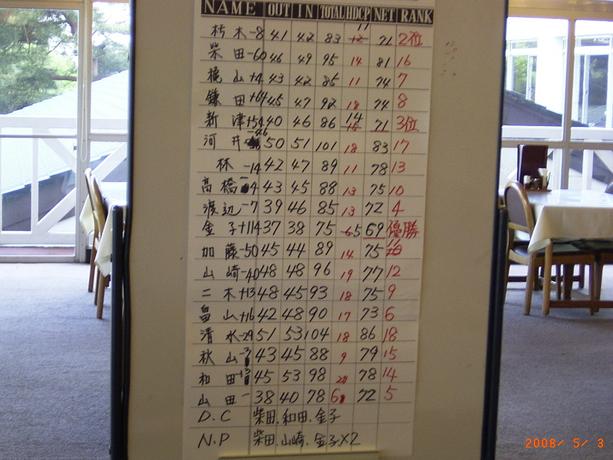 NAME OUT IN TOTAL HDCP NET RANK
朽木 -8 41 42 83 11 71 2位
柴田 -60 46 49 95 14 81 16
横山 +4 43 42 85 11 74 7
鎌田 45 47 92 18 74 8
新津 40 46 86 14 71 3位
河井 50 51 101 18 83 17
林 -14 42 47 89 11 78 13
高橋 43 45 88 13 75 10
渡辺 -7 39 46 85 13 72 4
金子 +114 37 38 75 6.5 69 優勝
加藤 -50 45 44 89 14 75
山崎 -40 48 48 96 19 77 12
二木 +13 48 45 93 18 75 9
畠山 +16 42 48 90 17 73 6
清水 -29 51 53 104 18 86 18
秋山 43 45 88 9 79 15
和田 45 53 98 20 78 14
山田 38 40 78 6 72 5
D.C 柴田.和田.金子
N.P 柴田.山崎.金子×2
2008/ 5/ 3